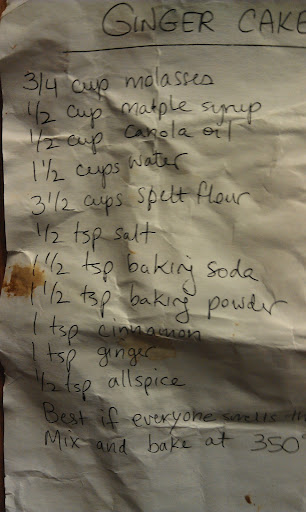 GINGER CAKE
3/4 cup molasses
1/2 cup maple syrup
1/2 cup canola oil
1 1/2 cups water
3 1/2 cups spelt flour
1/2 tsp salt
1 1/2 tsp baking soda
1 1/2 tsp baking powder
1 tsp cinnamon
1 tsp ginger
1/2 tsp allspice
Best if everyone smells th
Mix and bake at 350°